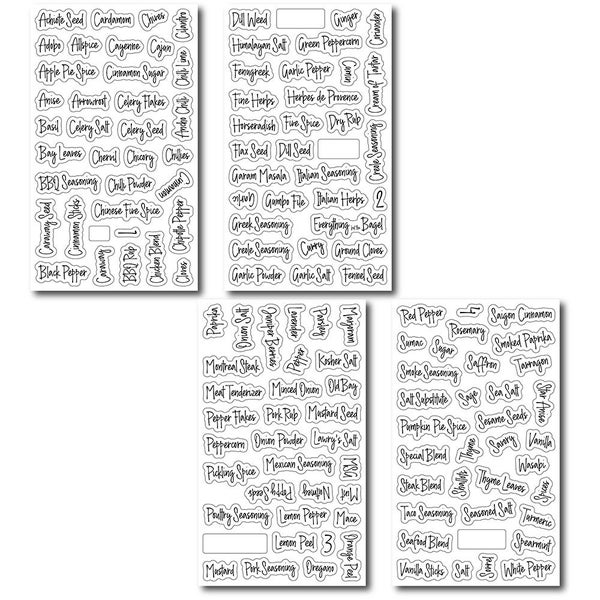 Achiote Seed Cardamom Chives
Cilantro
Adobo Allspice Cayenne Cajun
Chili Lime
Apple Pie Spice Cinnamon Sugar
Anise Arrowroot Celery Flakes
Ancho Chili
Basil Celery Salt Celery Seed
Bay Leaves Chervil Chicory Chilies
BBQ Seasoning Chili Powder
Cinnamon
Caraway Seed
Cinnamon Sticks
Chinese Five Spice
Chipotle Pepper
1
Caraway
BBQ Rub
Chicken Blend
Cloves
Black Pepper
Dill Weed Ginger
Coriander
Himalayan Salt Green Peppercorn
Fenugreek Garlic Pepper
Cumin
Cream of Tartar
Fine Herbs Herbes de Provence
Horseradish Five Spice Dry Rub
Flax Seed Dill Seed
Creole Seasoning
Garam Masala Italian Seasoning
Garlic
Gumbo File Italian Herbs 2
Greek Seasoning Everything but the Bagel
Creole Seasoning Curry Ground Cloves
Garlic Powder Garlic Salt Fennel Seed
Paprika
Onion Salt
Juniper Berries
Lavender
Parsley
Marjoram
Pepper
Montreal Steak Kosher Salt
Meat Tenderizer Minced Onion Old Bay
Pepper Flakes Pork Rub Mustard Seed
Peppercorn Onion Powder Lawry's Salt
Pickling Spice Mexican Seasoning
MSG
Poppy Seeds
Nutmeg
Mint
Poultry Seasoning Lemon Pepper Mace
Lemon Peel 3
Orange Peel
Mustard Pork Seasoning Oregano
Red Pepper 4 Saigon Cinnamon
Rosemary
Sumac Sugar Smoked Paprika
Smoke Seasoning Saffron Tarragon
Salt Substitute Sage Sea Salt
Star Anise
Pumpkin Pie Spice Sesame Seeds
Special Blend Thyme Savory Vanilla
Wasabi
Steak Blend
Shallots
Thyme Leaves
Spices
Taco Seasoning Seasoned Salt
Turmeric
Seafood Blend Spearmint
Vanilla Sticks Salt
Sorrel
White Pepper